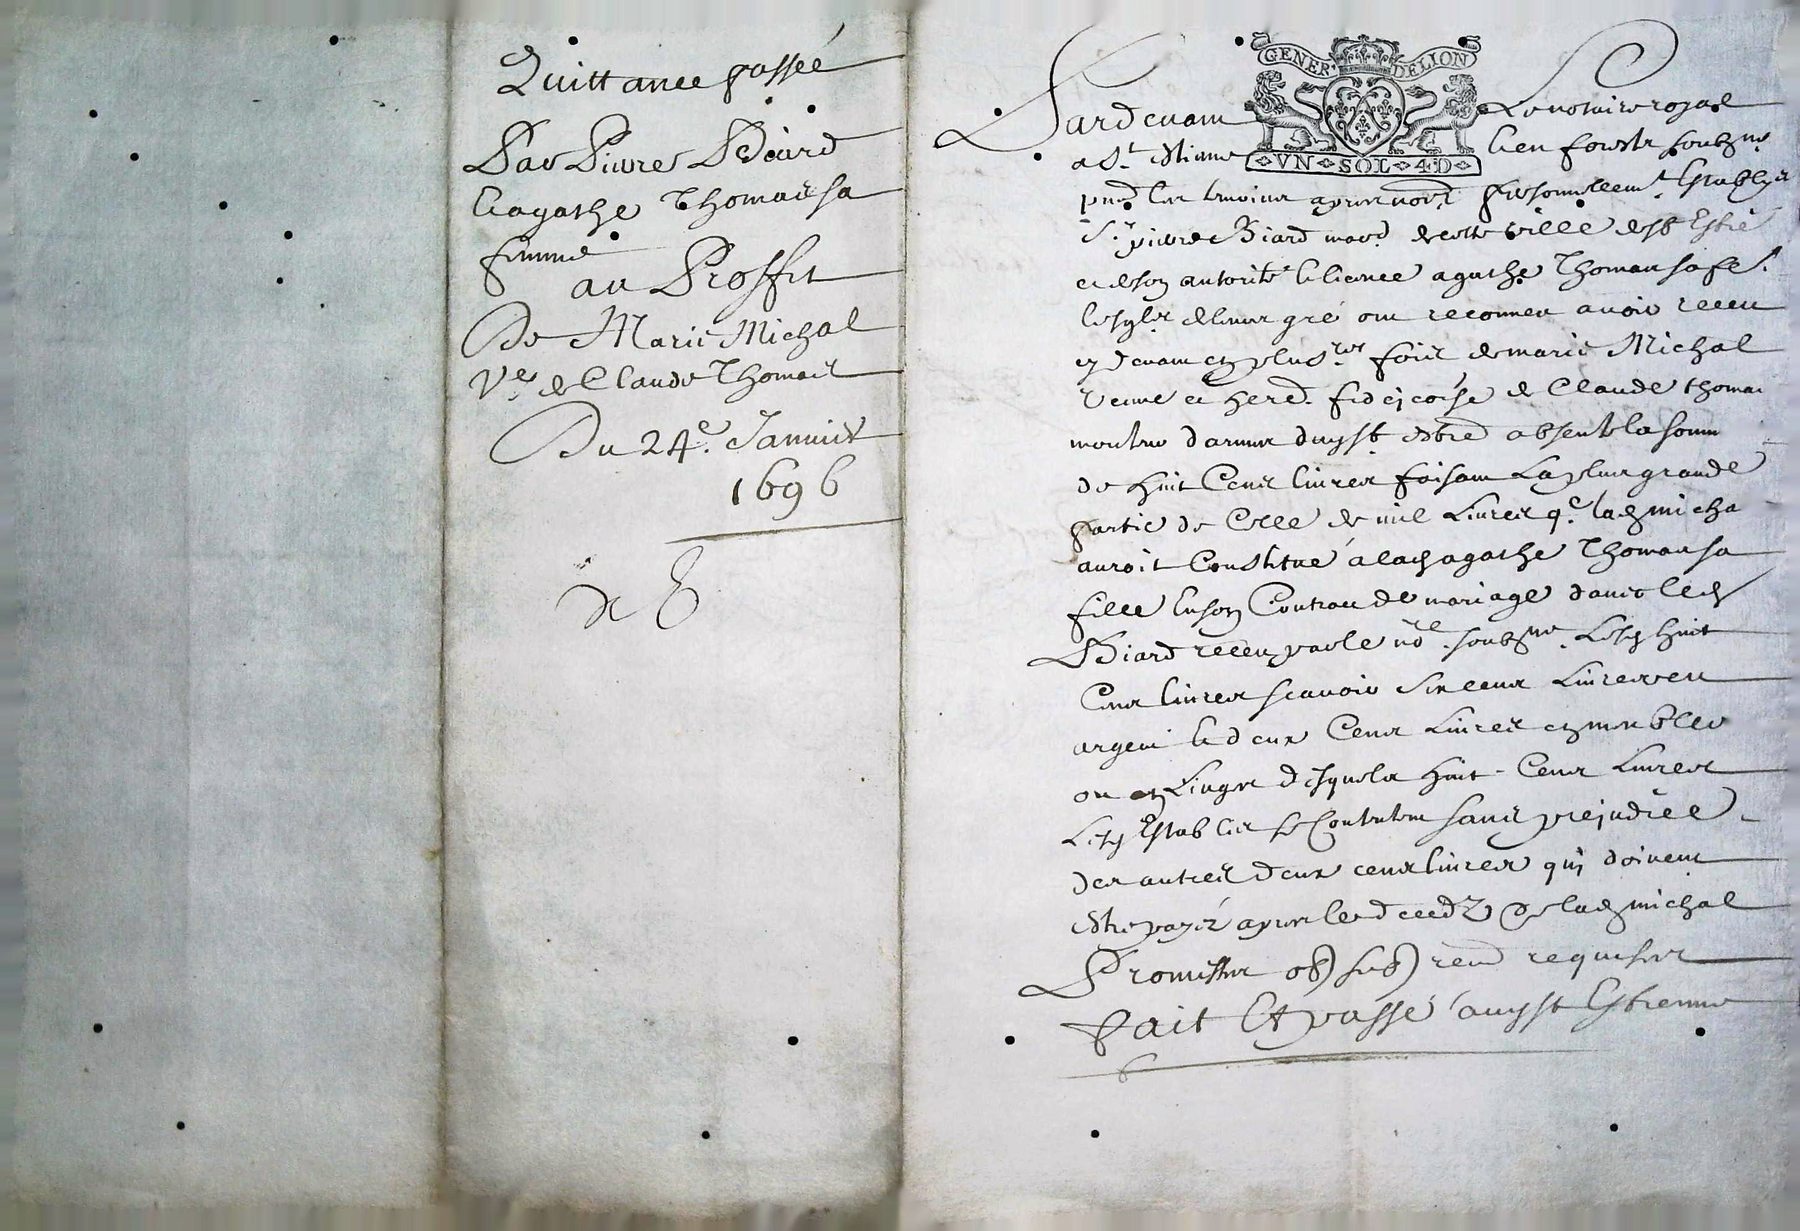 Quittance passée
Par Pierre Biard
et agathe Thomas sa
femme
au Proffit
De Marie Michal
Ve. de Claude Thomas
Du 24e. Janvier
1696
de
GENER. DELION
VN SOL 4.D
Pardevant Le notaire royal
a St. Estienne en forests soubzne
pnt les tesmoins apres només personellemt. Establys
Sr. pierre Biard march de cette ville de St Estne
et de son autorité et licence agathe Thomas sa fe.
lesqls de leur gré ont reconneu avoir receu
cy devant en plusrs fois de marie Michal
veuve et herd. fideicõise de Claude thomas
d'armes duy St absente la somme
de huit Cents livres faisant La plus grande
partie de Celle de mil Livres q. lad michal
auroit Constitué a lad agathe Thomas sa
fille en son Contract de mariage d'avec led
Biard receu par le no.re soubzne. Lesd huit
Cents livres scavoir Six cents Livres en
argent et deux Cents Livres en meubles
ou en Linges desquels huit Cents Livres
Lesd Establis se Contentent sans prejudice
des autres deux cents livres qui doivent
estre payéz apres le deceds de lad michal
Promettant ob) sub) ren requises
Fait Et passé audt St Estienne